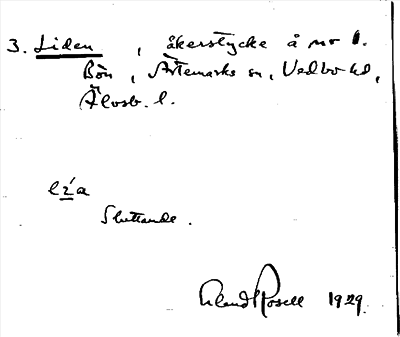 3. Liden , åkerstycke å nr 1.
Bön, Ärtemarks sn, Vedbo hd,
Älvsb. l.
lí̱a
Sluttande.
Erland Rosell 1929.